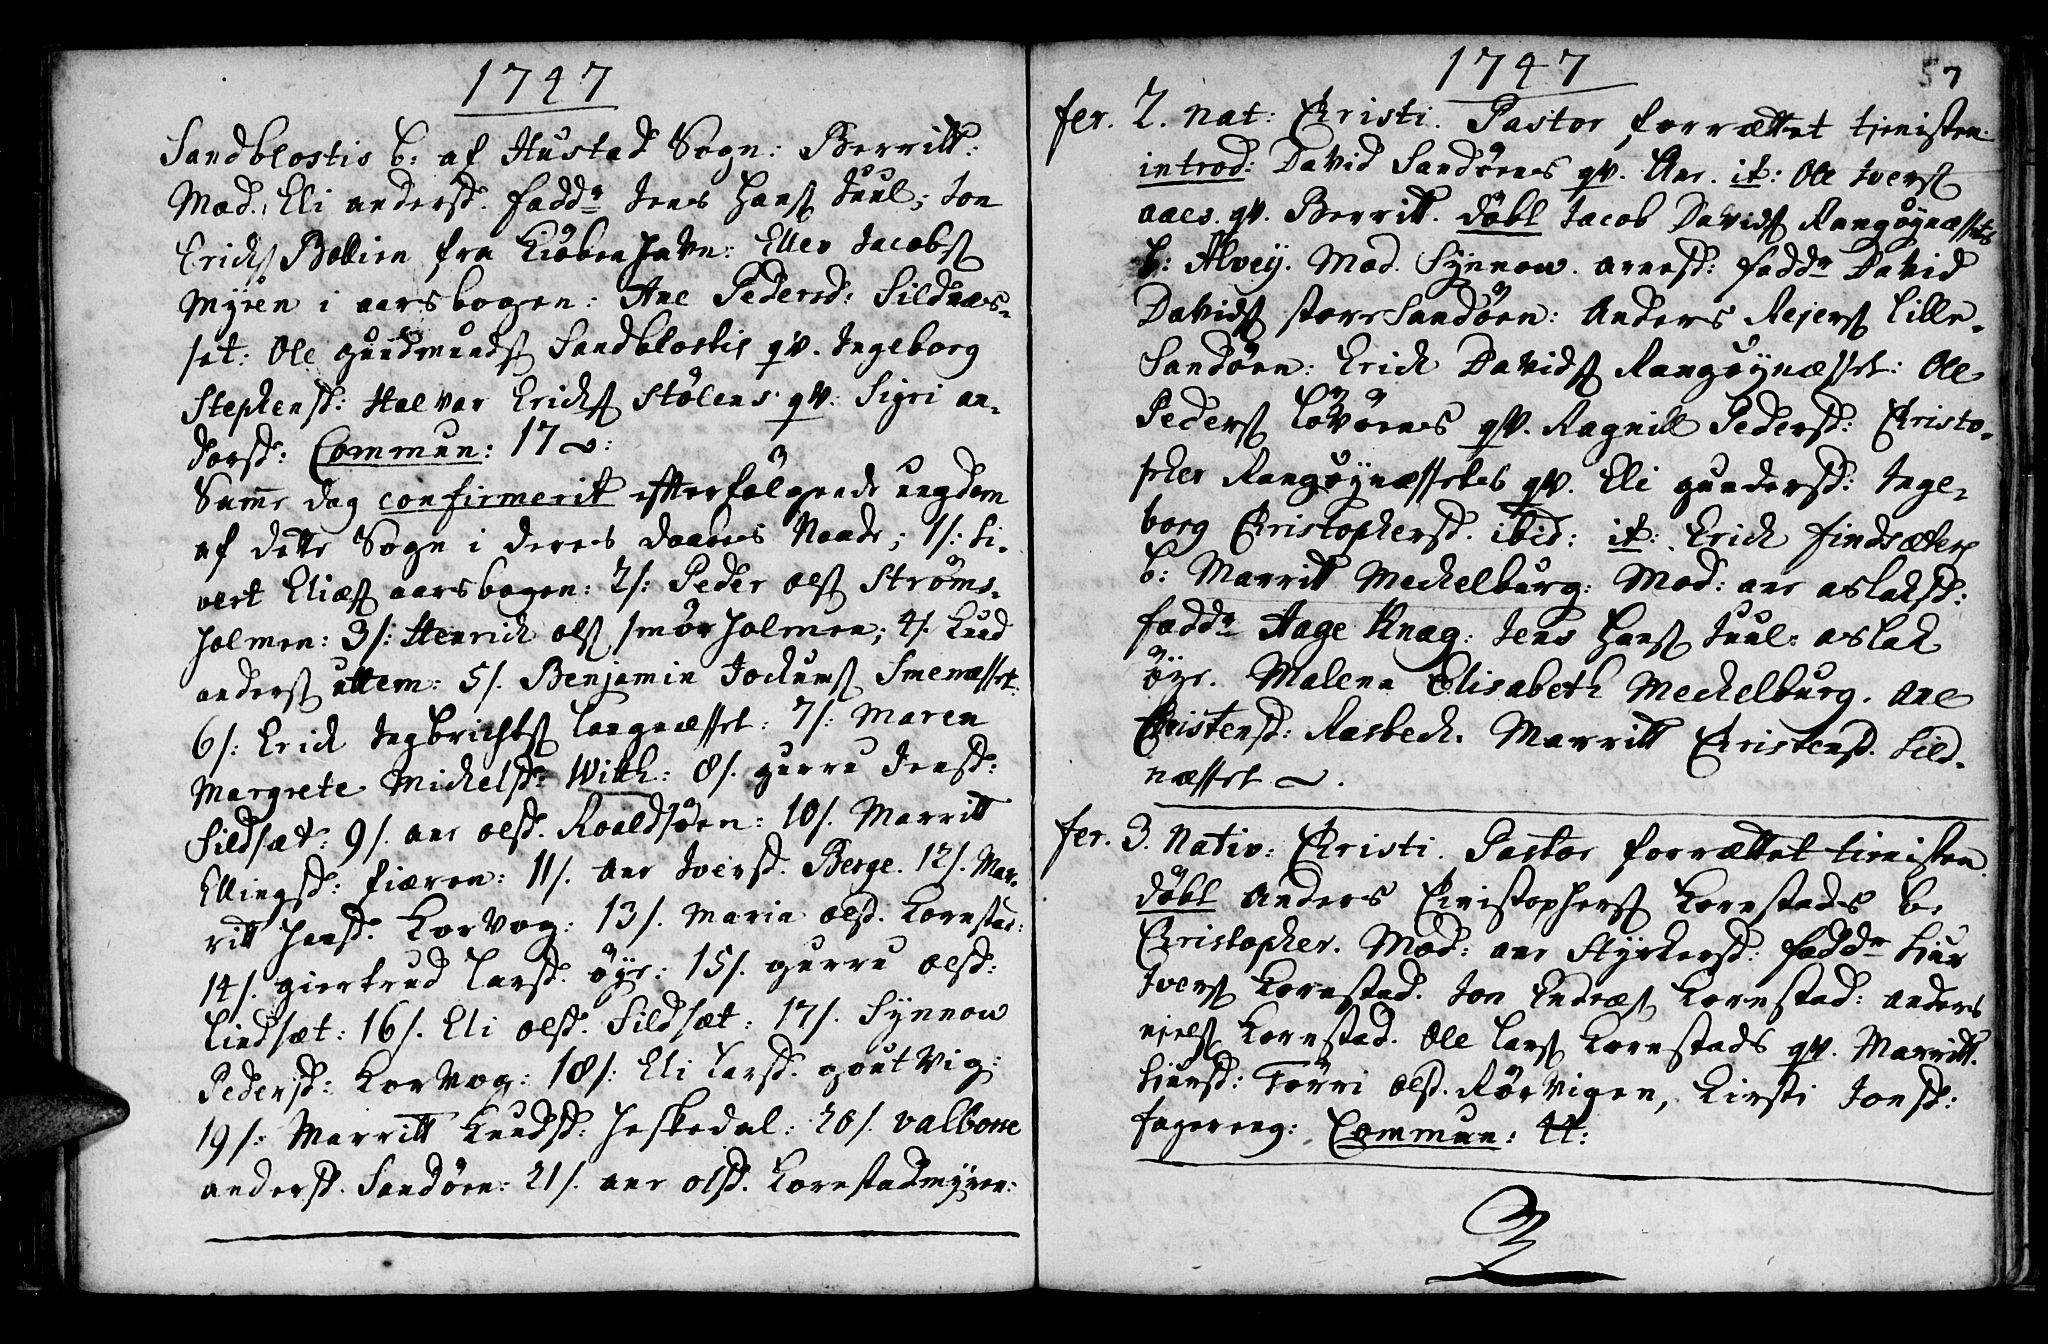 1747
Sandblostis b: af Hustad Sogn: Berritt:
Mod. Eli andersd. fadd: Jens Hans Juul; Jon
Erichs Bollien fra Kiøbenhavn: Eller Jacobs
Myren i aarsbogen: Ane Pedersd: Sildnæs-
set: Ole gundmunds Sandblostis qv. Ingeborg
Stephensd: Halvor Erichs Stølens qv: Sigri an-
dersd: Commun: 17
Samme dag confirmerit efterfølgende ungdom
af dette Sogn i deres daabes Naade; 1/: Si-
vert Eliæs aarsbogen: 2/: Peder ols Strøms-
holmen: 3/: Henrich ols smørholmen; 4/. Knud
anders uttem: 5/. Benjamin Jochums Smenæsset:
6/: Erich Ingbrichts langnæsset: 7/: Maren
Margrete Michelsd: With: 8/. gurru Jensd:
Sildsæt: 9/. ane olsd. Roaldsøen: 10/. Marritt
Ellingsd: fiæren: 11/. ane Iversd. Berge. 12/. Mar-
ritt Hansd. Korvog: 13/. Maria olsd. Kornstad:
14/. giertrud Larsd. øye: 15/. gurru olsd:
Lindsæt: 16/. Eli olsd. Sildsæt: 17/. Synnow
Pedersd: Korvog: 18/: Eli Larsd. goutvig:
19/: Marritt Knudsd: Heskedal: 20/. Valborre
andersd. Sandøen: 21/. ane olsd. Kornstadmyren:
1747
57
fer. 2. Nat: Christi. Pastor forrættet tienisten:
introd: David Sandøens qv. Ane. it: Ole Ivers
aaes. qv. Berritt. døbt Jacob Davids Rangøynæssets
b: Alvey. Mod. Synnow. arnesd: fadd: David
Davids storrSandøen: Anders Rejers Lille-
Sandøen: Erich Davids Rangøynæsset: Ole
Peders Løvøens qv. Ragnill Pedersd: Christo-
pher Rangøynæssetes qv. Eli gundersd: Inge-
borg Christophersd. ibid: it: Erich findsæters
b: Marritt Mechelburg: Mod: ane aslaksd:
fadd: Aage Knag: Jens Hans Juul: aslak
øye. Malena Elisabeth Mechelburg. ane
Christensd: Rasbech. Marritt Christensd. Sild-
næsset
fer. 3. Nativ: Christi. Pastor forrættet tienisten.
døbt Anders Christophers Kornstads b:
Christopher. Mod: ane Styrkersd: fadd: Siur
Ivers Kornstad. Jon Endræs Kornstad: anders
niels Kornstad. Ole Lars Kornstads qv. Marritt
Siursd: Torri olsd. Rørvigen, Kirsti Jonsd:
fagereng: Commun: 44: